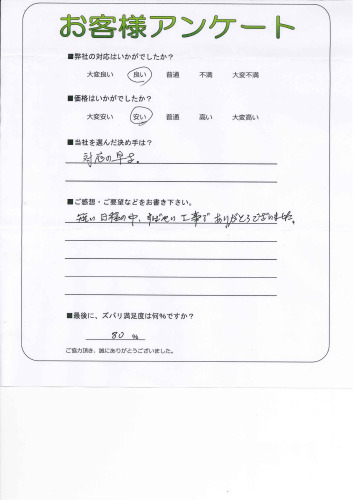 お客様アンケート
■弊社の対応はいかがでしたか？
大変良い 良い 普通 不満 大変不満
■価格はいかがでしたか？
大変安い 安い 普通 高い 大変高い
■当社を選んだ決め手は？
対応の早さ。
■ご感想・ご要望などをお書き下さい。
短い日程の中、すばやい工事でありがとうございました。
■最後に、ズバリ満足度は何％ですか？
80 %
ご協力頂き、誠にありがとうございました。